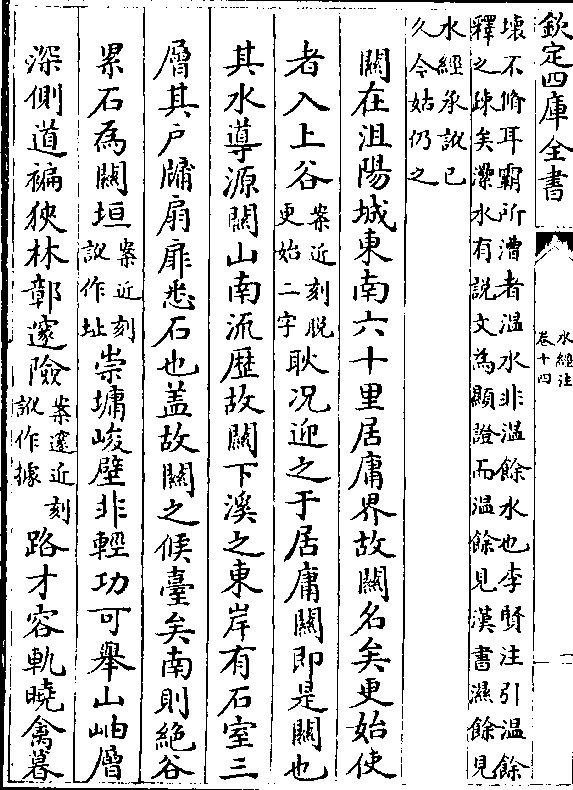 欽定四庫全書
水經注
卷十四
一
壞不脩耳霸所漕者溫水非溫餘水也李賢注引溫餘
釋之疎矣濕水有說文為顯證而溫餘見漢書濕餘見
水經承訛已
久今姑仍之
關在沮陽城東南六十里居庸界故關名矣更始使
者入上谷案近刻脫更始二字耿况迎之于居庸關即是關也
其水導源關山南流歴故關下溪之東岸有石室三
層其戶牖扇扉悉石也盖故關之候臺矣南則絶谷
累石為關垣案近刻訛作址崇墉峻壁非輕功可舉山岫層
深側道褊狹林鄣邃險案邃近刻訛作據路才容軌曉禽暮